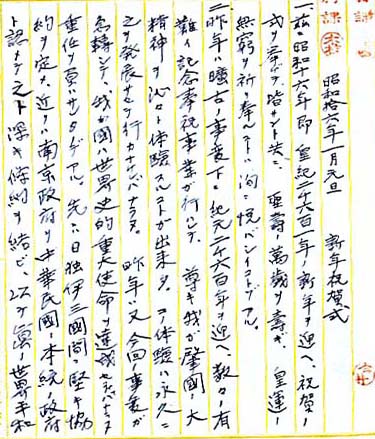 昭和拾六年一月元旦　新年祝賀式
一、茲ニ昭和十六年即皇紀二千六百一年ノ新年ヲ迎ヘ、祝賀ノ
式ヲ挙ゲ、踏サント共ニ　聖壽ノ萬歳ヲ壽ギ、皇運ノ
無窮ヲ祈リ奉ルコトハ洵ニ悦ベシイコトデアル。
二、昨年ハ曠古ノ事変下ニ紀元二千六百年ヲ迎ヘ、数々ノ有
難イ記念奉祝事業ガ行ハレテ、尊キ我ガ肇國ノ大
精神ヲ沁々ト体驗スルコトガ出来タ。コノ体驗ハ永久ニ
之ヲ発展サセテ行カナケレバナラヌ。　昨年ハ又今回ノ事変ガ
急轉シテ、我ガ國ハ世界史的重大使命ヲ達成セネバナラヌ
重任ヲ負ハサレタノデアル。先ニハ日独伊三國間ニ堅キ協
約ヲ定メ、近クハ南京政府ヲ中華民國ノ本統ノ政府
ト認メテ之ト深キ條約ヲ結ビ、以テ眞ノ世界平和